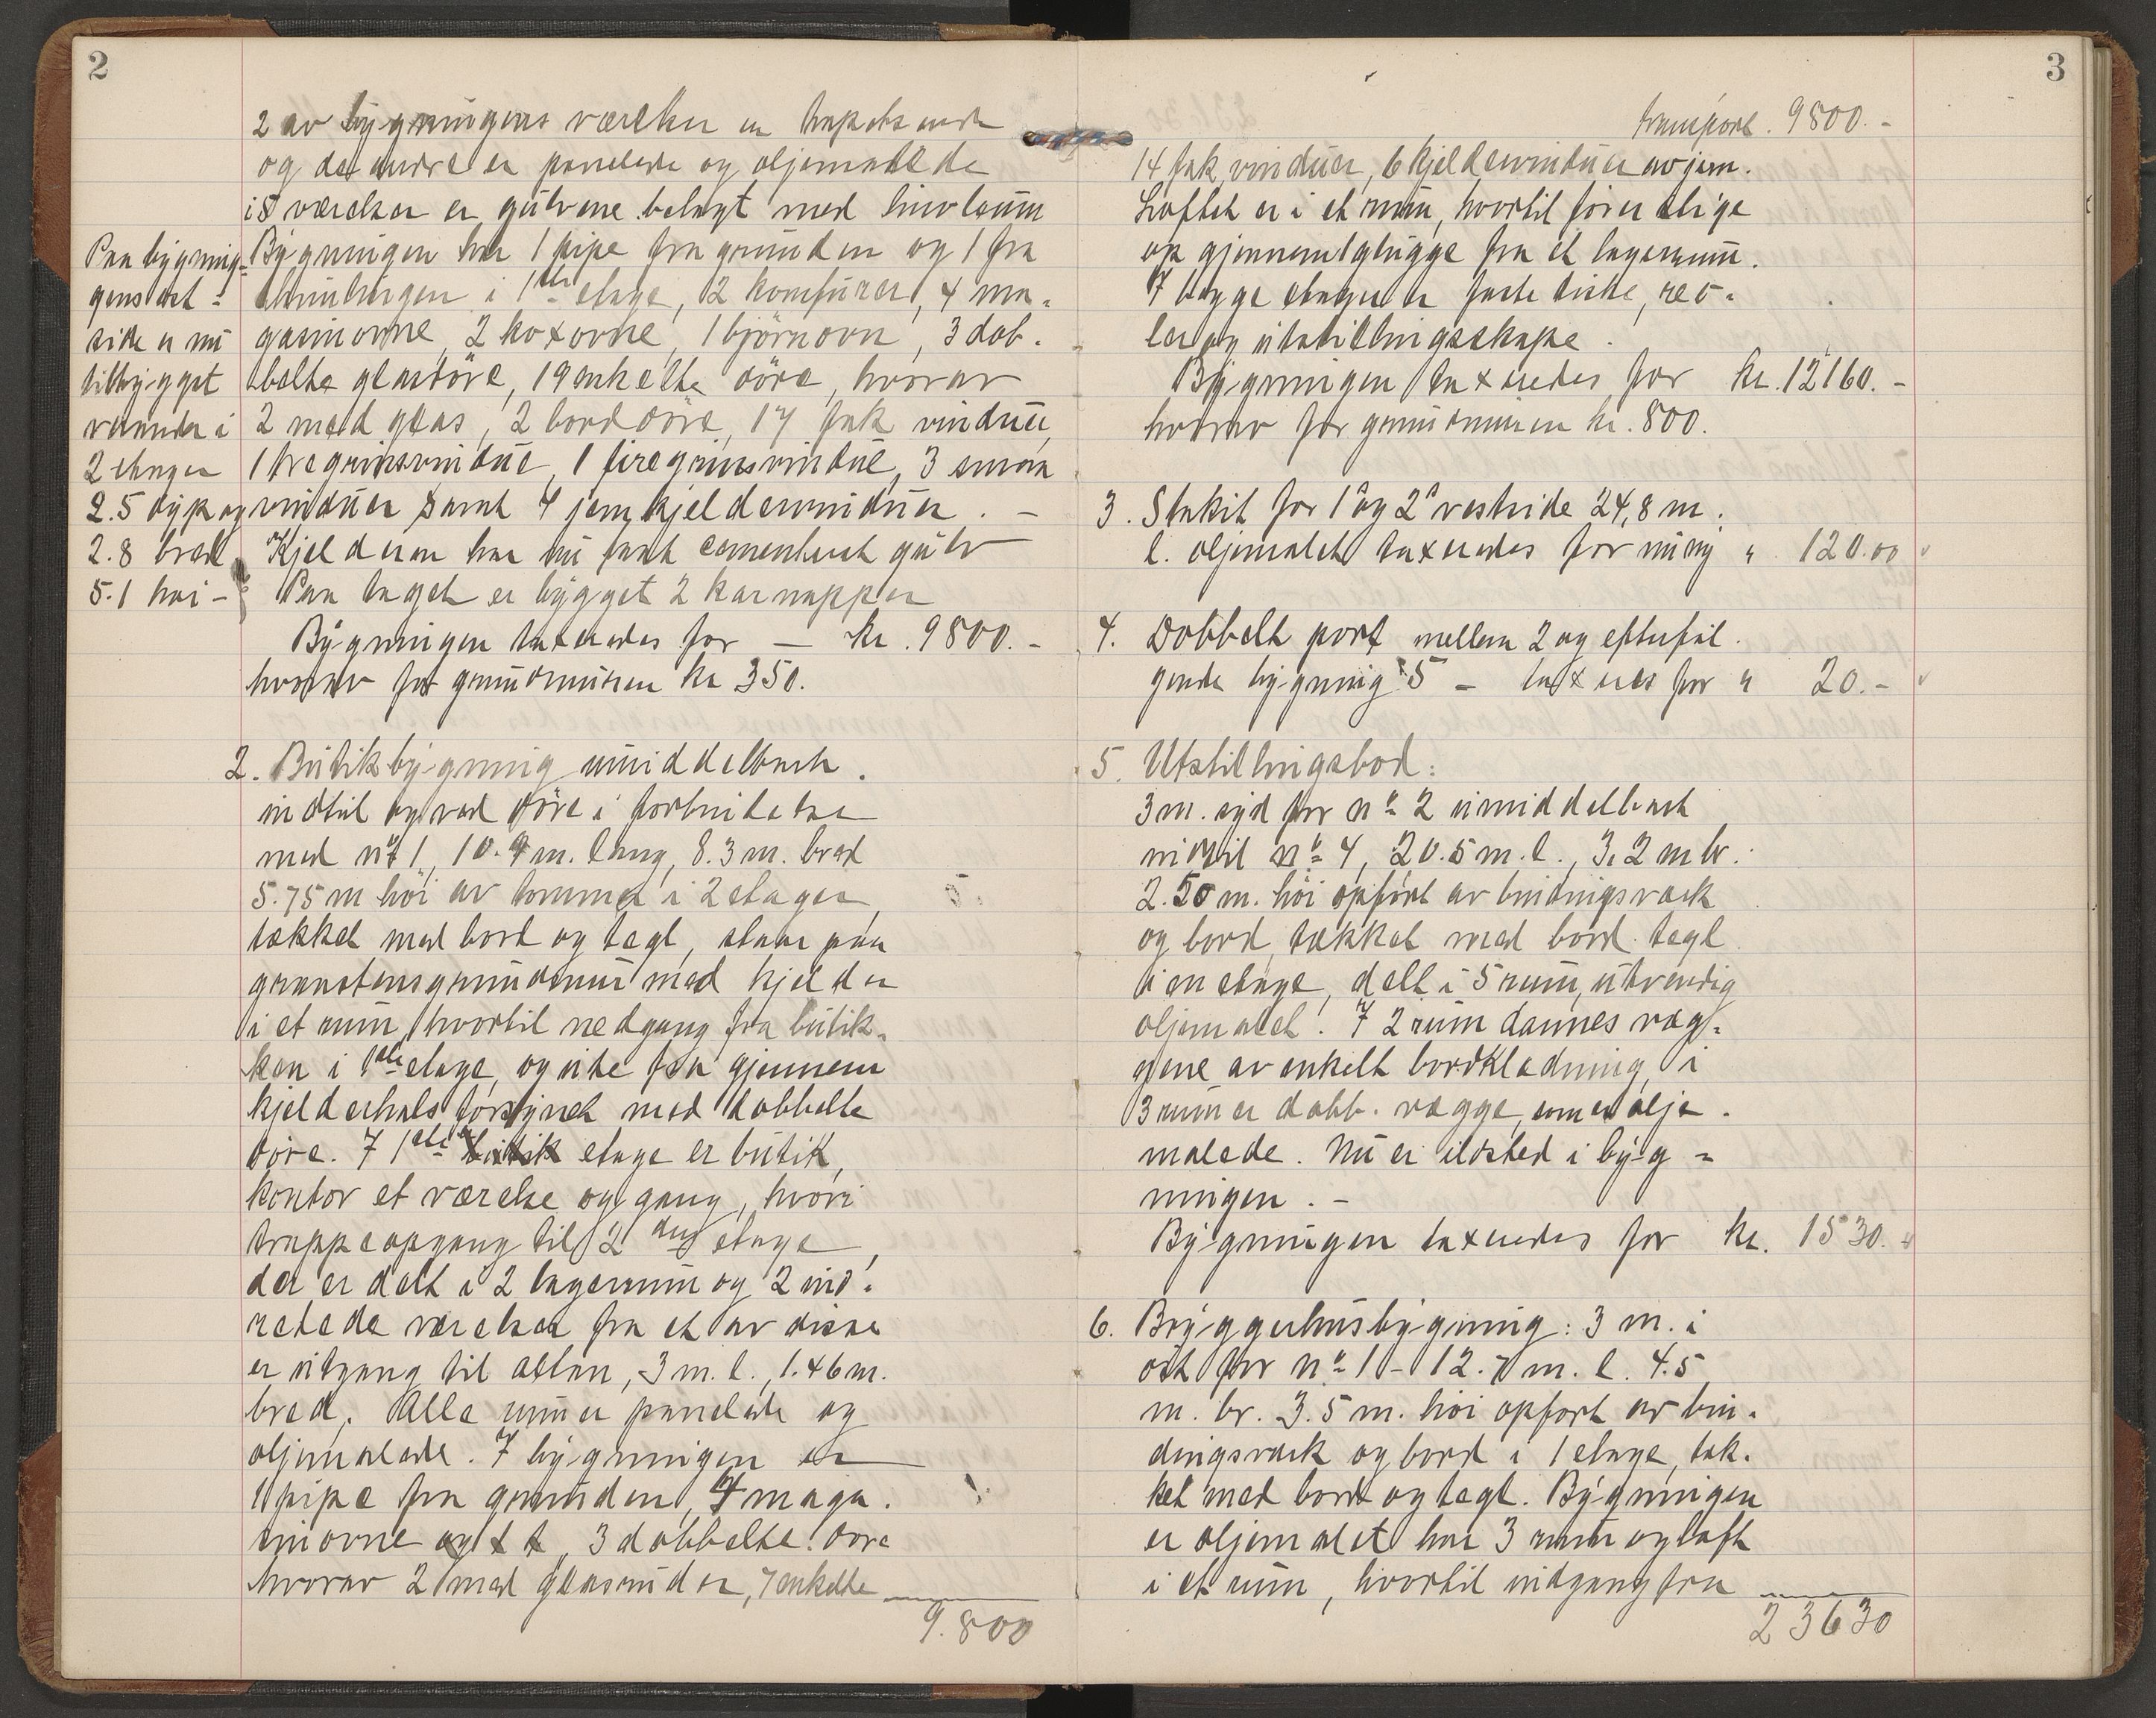 2
2 av bygningens værelser er tapetserede
og de andre er panelede og oljemalede
i 8 værelser er gulvene belagt med linoleum
Bygningen har 1 pipe fra grunden og 1 fra
i 1ste etage, 2 komfurer, 4 ma-
gasinovne, 2 koxovne, 1 björnovn, 3 dob-
belte glasdöre, 19 enkelte döre, hvorav
2 med glas, 2 borddöre, 17 fak vinduer,
1 tregrinsvindue, 1 firegrinsvindue, 3 smaa
vinduer samt 4 jern kjeldervinduer. -
Kjelderen har nu fast cementert gulv
Paa taget er bygget 2 karnapper
Bygningen taxeredes for — kr. 9800. -
hvorav for grundmuren kr 350.
Paa bygnin-
gens öst-
side er nu
tilbygget
veranda i
2 etager
2.5 dyp og
2.8 bred
5.1 höi -
2. Butikbygning umiddelbart
indtil og ved döre i forbindelse
med no 1, 10.9 m. lang, 8.3 m. bred
5.75 m höi av tömmer i 2 etager,
tækket med bord og tegl, staar paa
graastensgrundmur med kjelder
i et rum, hvortil nedgang fra butik-
ken i 1ste etage, og ute fra gjennem
kjelderhals forsynet med dobbelte
döre. I 1ste butik etage er butik,
kontor et værelse og gang, hvori
trappeopgang til 2den etage,
der er delt i 2 lagerrum og 2 ind-
redede værelser fra et av disse
er utgang til altan, 3 m. l., 1.46 m.
bred. Alle rum er panelede og
oljemalede. I bygningen er
1 pipe fra grunden, 4 maga-
sinovne og 3 dobbelte döre
hvorav 2 med glasruder, 7 enkelte
9.800
3
transport. 9800. -
14 fak vinduer, 6 kjeldervinduer av jern.
Loftet er i et rum, hvortil förer stige
op gjennem 1 glugge fra et lagerrum.
I begge etager er faste diske, reo-
ler og utstillingsskape.
Bygningen taxeredes for kr. 12160. -
hvorav for grundmuren kr. 800.
3. Stakit for 1 og 2 vestside 24,8 m.
l. oljemalet taxeredes for ny " 120.00
4. Dobbelt port mellem 2 og efterföl-
gende bygning 5 - taxeres for " 20. -
5. Utstillingsbod:
3 m. syd for no 2 umiddelbart
indtil no 4, 20.5 m. l., 3,2 m br.
2.50 m. höi opfört av bindingsverk
og bord, tækket med bord. tegl
i en etage, delt i 5 rum, utvendig
oljemalet. I 2 rum dannes væg-
gene av enkelt bordklædning, i
3 rum er dobb. vægge, som er olje-
malede. Nu er ildsted i byg-
ningen. -
Bygningen taxeredes for kr. 1530. -
6. Bryggerhusbygning: 3 m. i
öst for no 1 - 12.7 m. l. 4.5
m. br. 3.5 m. höi opfört av bin-
dingsverk og bord i 1 etage, tæk-
ket med bord og tegl. Bygningen
er oljemalet har 3 rum og loft
i et rum, hvortil indgang fra
23630